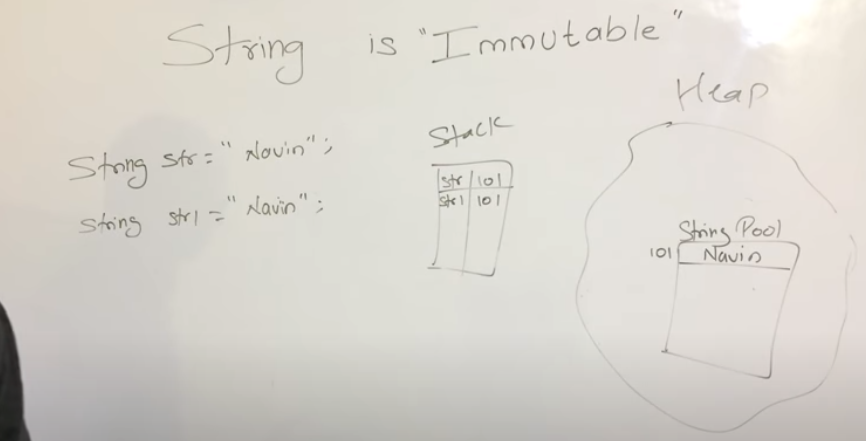 String is "Immutable"
String str = "Navin";
string str1 = "Navin";
Stack
str 101
str1 101
Heap
String Pool
101 Navin